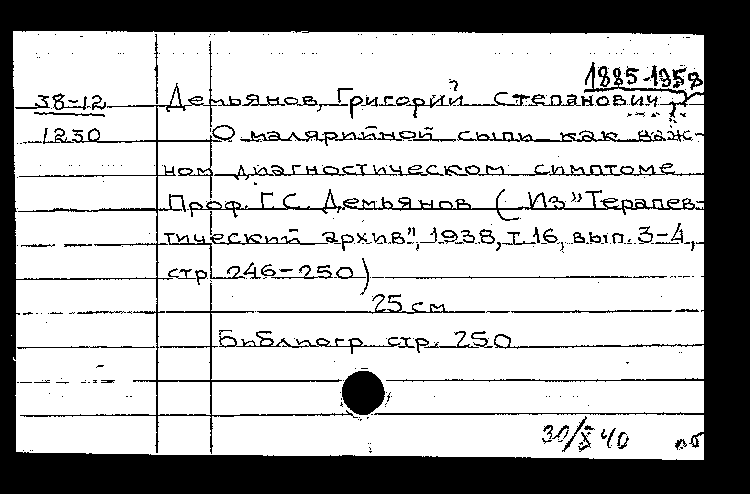 1885-1958
38-12 Демьянов, Григорий Степанович
1230 О малярийной сыпи как важ-
ном диагностическом симптоме
Проф. Г.С. Демьянов (Из "Терапев-
тический архив", 1938, т. 16, вып. 3-4,
стр 246-250)
25 см
Библиогр стр. 250
30/X 40 об